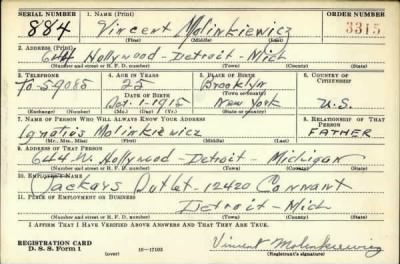 SERIAL NUMBER
884
1. NAME (Print)
Vincent Molinkiewicz
(First) (Middle) (Last)
ORDER NUMBER
3315
2. ADDRESS (Print)
644 Hollywood - Detroit - Mich
(Number and street or R. F. D. number) (Town) (County) (State)
3. TELEPHONE
TO-59085
(Exchange) (Number)
4. AGE IN YEARS
25
DATE OF BIRTH
Oct. 1 - 1915
(Mo.) (Day) (Yr.)
5. PLACE OF BIRTH
Brooklyn
(Town or county)
New York
(State or country)
6. COUNTRY OF CITIZENSHIP
U.S.
7. NAME OF PERSON WHO WILL ALWAYS KNOW YOUR ADDRESS
Ignatius Molinkiewicz
(Mr., Mrs., Miss) (First) (Middle) (Last)
8. RELATIONSHIP OF THAT PERSON
FATHER
9. ADDRESS OF THAT PERSON
644 W. Hollywood - Detroit - Michigan
(Number and street or R. F. D. number) (Town) (County) (State)
10. EMPLOYER'S NAME
Packars Outlet - 12420 Connant
11. PLACE OF EMPLOYMENT OR BUSINESS
Detroit - Mich
(Number and street or R. F. D. number) (Town) (County) (State)
I AFFIRM THAT I HAVE VERIFIED ABOVE ANSWERS AND THAT THEY ARE TRUE.
REGISTRATION CARD
D. S. S. Form 1
(over)
16-17105
Vincent Molinkiewicz
(Registrant's signature)